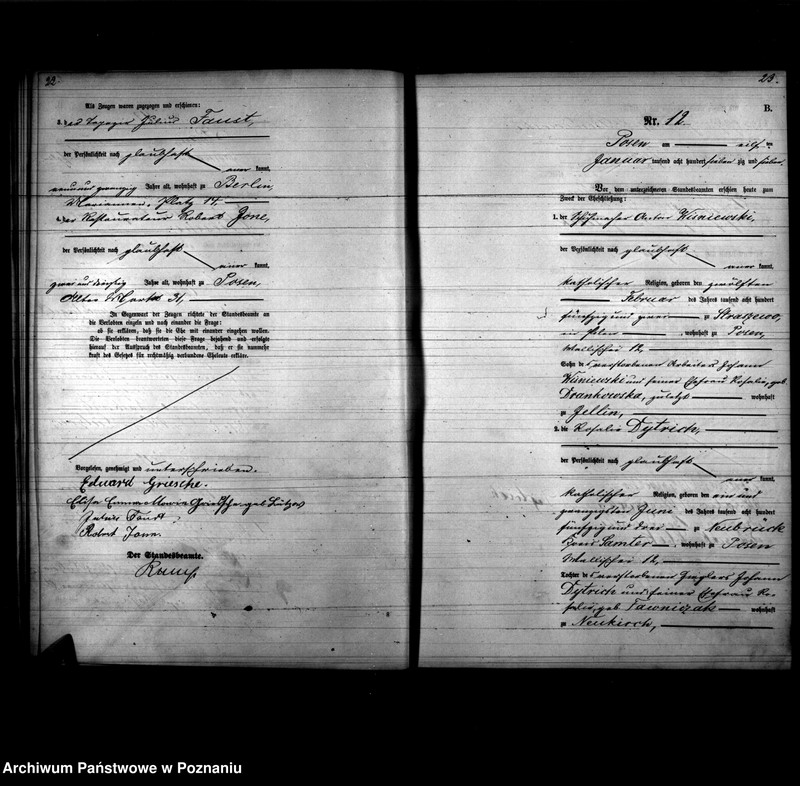 22
Als Zeugen waren zugezogen und erschienen:
3. der Tapezir Julius Faust,
der Persönlichkeit nach glaubhaft
kannt,
neunundzwanzig Jahre alt, wohnhaft zu Berlin,
Mariannen Platz 14
4. der Restaurateur Robert
der Persönlichkeit nach glaubhaft
kannt,
zweiunddreißig Jahre alt, wohnhaft zu Posen,
31,
In Gegenwart der Zeugen richtete der Standesbeamte an
die Verlobten einzeln und nach einander die Frage:
ob sie erklären, daß sie die Ehe mit einander eingehen wollen.
Die Verlobten beantworteten diese Frage bejahend und erfolgte
hierauf der Ausspruch des Standesbeamten, daß er sie nunmehr
kraft des Gesetzes für rechtmäßig verbundene Eheleute erkläre.
Vorgelesen, genehmigt und unterschrieben.
Eduard Griesche.
Elise Emma Maria Griesche geb Lützow
Julius Faust
Robert
Der Standesbeamte.
23.
B.
Nr. 12.
Posen am elf ten
Januar tausend acht hundert siebenzig und sieben
Vor dem unterzeichneten Standesbeamten erschien heute zum
Zweck der Eheschließung:
1. der Schuhmacher Anton Wisniewski,
der Persönlichkeit nach glaubhaft
kannt,
katholischer Religion, geboren den zwölften
Februar des Jahres tausend acht hundert
fünfzig und zwei zu
in Polen, wohnhaft zu Posen,
Wallischei 12,
Sohn des verstorbenen Arbeiters Johann
Wisniewski und seiner Ehefrau Rosalie, geb.
zuletzt wohnhaft
zu
2. die Rosalie Dytrich,
der Persönlichkeit nach glaubhaft
kannt,
katholischer Religion, geboren den ein und
zwanzigsten Juni des Jahres tausend acht hundert
fünfzig und drei zu Neubrück
Kreis Samter, wohnhaft zu Posen
Wallischei 12,
Tochter des verstorbenen Zieglers Johann
Dytrich und seiner Ehefrau Ro-
salie, geb. Tawniczak wohnhaft
zu Neukirch,
Archiwum Państwowe w Poznaniu